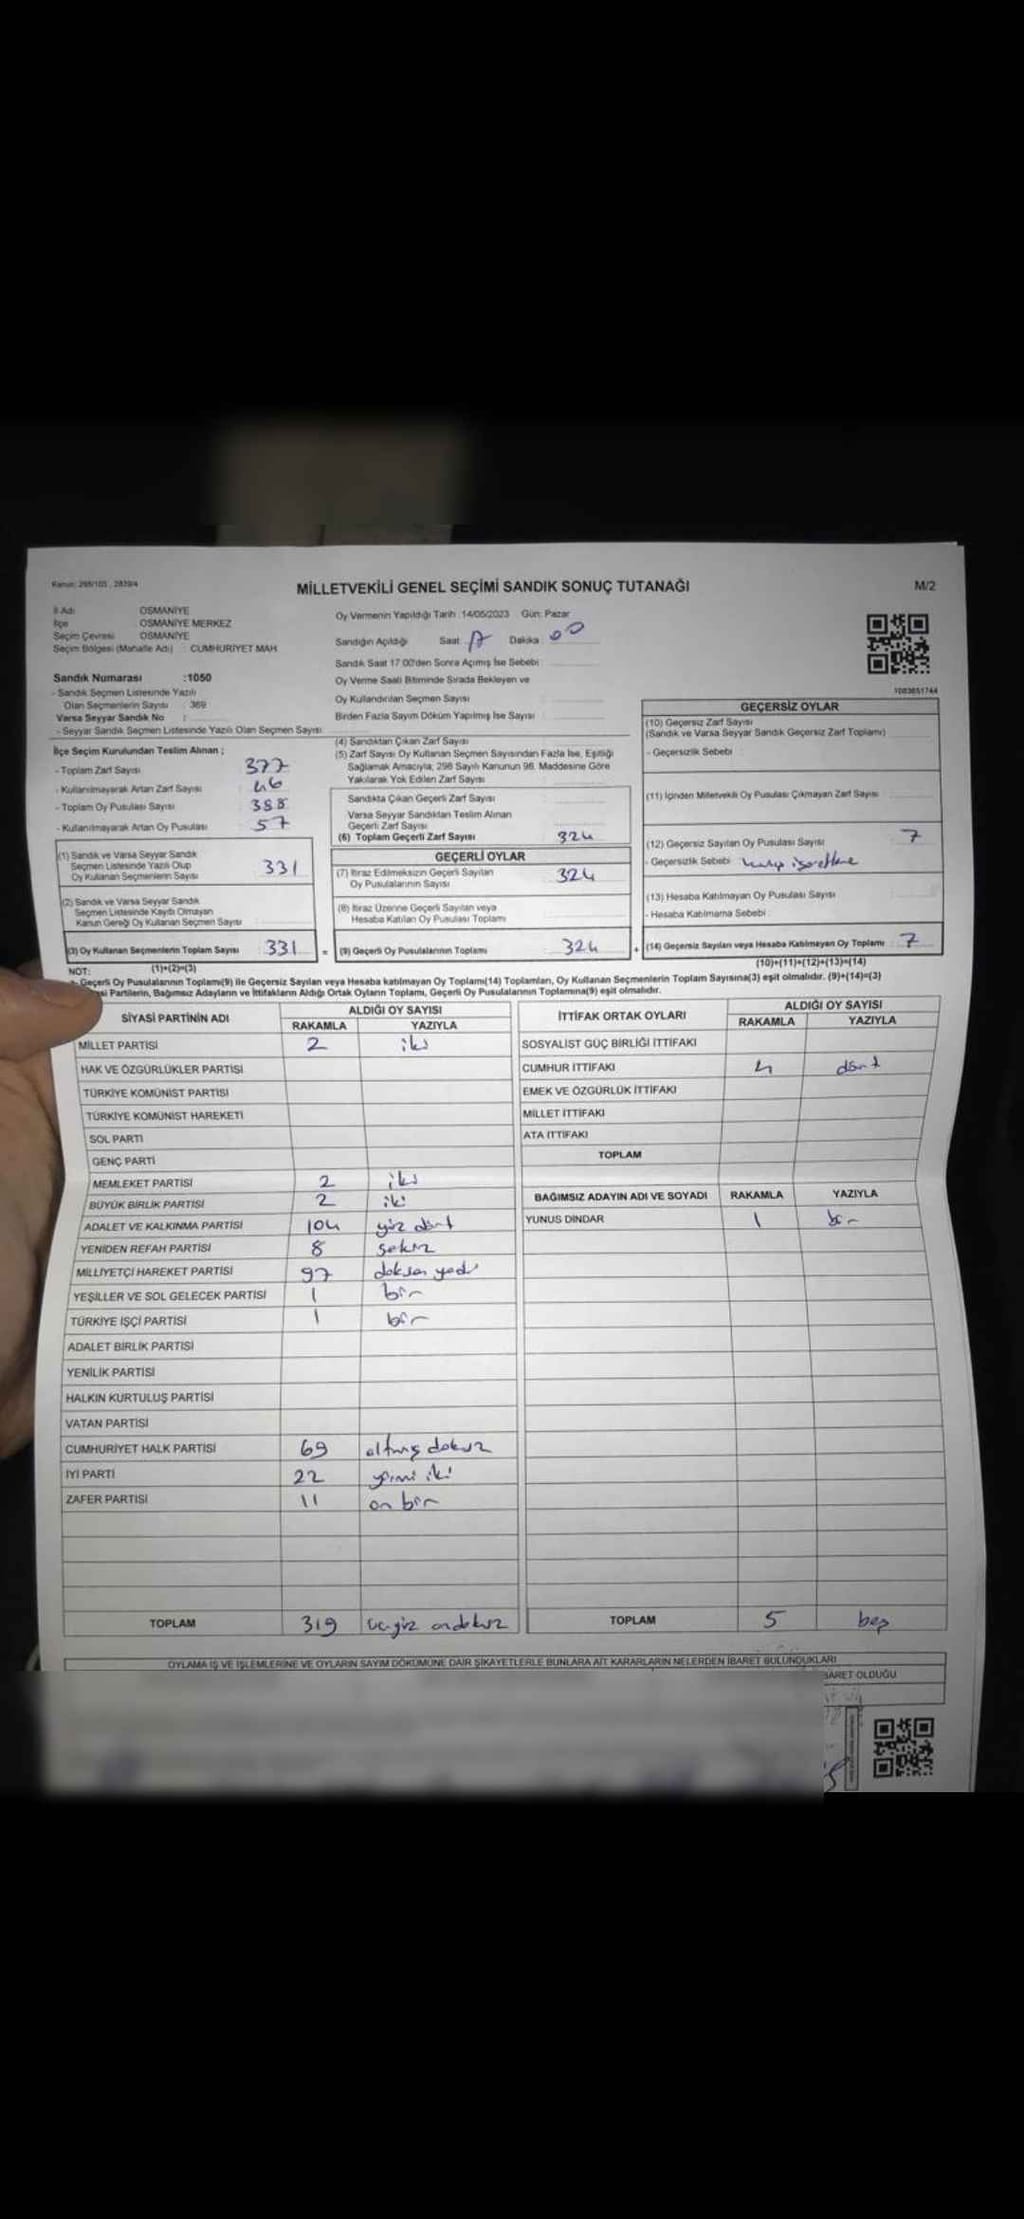 Kanun: 298/105 , 2839/4
MİLLETVEKİLİ GENEL SEÇİMİ SANDIK SONUÇ TUTANAĞI
M/2
İl Adı OSMANİYE
İlçe OSMANİYE MERKEZ
Seçim Çevresi OSMANİYE
Seçim Bölgesi (Mahalle Adı) : CUMHURİYET MAH.
Sandık Numarası :1050
- Sandık Seçmen Listesinde Yazılı
Olan Seçmenlerin Sayısı : 369
Varsa Seyyar Sandık No :
- Seyyar Sandık Seçmen Listesinde Yazılı Olan Seçmen Sayısı
Oy Vermenin Yapıldığı Tarih : 14/05/2023 Gün: Pazar
Sandığın Açıldığı Saat 17 Dakika 00
Sandık Saat 17:00'den Sonra Açımış İse Sebebi :
Oy Verme Saati Bitiminde Sırada Bekleyen ve
Oy Kullandırılan Seçmen Sayısı
Birden Fazla Sayım Döküm Yapılmış İse Sayısı :
1003651744
İlçe Seçim Kurulundan Teslim Alınan ;
- Toplam Zarf Sayısı 377
- Kullanılmayarak Artan Zarf Sayısı 46
- Toplam Oy Pusulası Sayısı 388
- Kullanılmayarak Artan Oy Pusulası 57
(1) Sandık ve Varsa Seyyar Sandık
Seçmen Listesinde Yazılı Olup
Oy Kullanan Seçmenlerin Sayısı 331
(2) Sandık ve Varsa Seyyar Sandık
Seçmen Listesinde Kayıtlı Olmayan
Kanun Gereği Oy Kullanan Seçmen Sayısı
(3) Oy Kullanan Seçmenlerin Toplam Sayısı 331 =
(1)+(2)=(3)
(4) Sandıktan Çıkan Zarf Sayısı
(5) Zarf Sayısı Oy Kullanan Seçmen Sayısından Fazla İse, Eşitliği
Sağlamak Amacıyla, 298 Sayılı Kanunun 98. Maddesine Göre
Yakılarak Yok Edilen Zarf Sayısı
Sandıkta Çıkan Geçerli Zarf Sayısı
Varsa Seyyar Sandıktan Teslim Alınan
Geçerli Zarf Sayısı
(6) Toplam Geçerli Zarf Sayısı 324
GEÇERLİ OYLAR
(7) İtiraz Edilmeksizin Geçerli Sayılan
Oy Pusulalarının Sayısı 324
(8) İtiraz Üzerine Geçerli Sayılan veya
Hesaba Katılan Oy Pusulası Toplamı
(9) Geçerli Oy Pusulalarının Toplamı 324 +
GEÇERSİZ OYLAR
(10) Geçersiz Zarf Sayısı
(Sandık ve Varsa Seyyar Sandık Geçersiz Zarf Toplamı)
- Geçersizlik Sebebi :
(11) İçinden Milletvekili Oy Pusulası Çıkmayan Zarf Sayısı
(12) Geçersiz Sayılan Oy Pusulası Sayısı 7
- Geçersizlik Sebebi işaretleme
(13) Hesaba Katılmayan Oy Pusulası Sayısı
- Hesaba Katılmama Sebebi :
(14) Geçersiz Sayılan veya Hesaba Katılmayan Oy Toplamı 7
(10)+(11)+(12)+(13)=(14)
NOT:
Geçerli Oy Pusulalarının Toplamı(9) ile Geçersiz Sayılan veya Hesaba Katılmayan Oy Toplamı(14) Toplamları, Oy Kullanan Seçmenlerin Toplam Sayısına(3) eşit olmalıdır. (9)+(14)=(3)
Partilerin, Bağımsız Adayların ve İttifakların Aldığı Ortak Oyların Toplamı, Geçerli Oy Pusulalarının Toplamına(9) eşit olmalıdır.
SİYASİ PARTİNİN ADI ALDIĞI OY SAYISI
RAKAMLA YAZIYLA
MİLLET PARTİSİ 2 iki
HAK VE ÖZGÜRLÜKLER PARTİSİ
TÜRKİYE KOMÜNİST PARTİSİ
TÜRKİYE KOMÜNİST HAREKETİ
SOL PARTİ
GENÇ PARTİ
MEMLEKET PARTİSİ 2 iki
BÜYÜK BİRLİK PARTİSİ 2 iki
ADALET VE KALKINMA PARTİSİ 104 yüz dört
YENİDEN REFAH PARTİSİ 8 sekiz
MİLLİYETÇİ HAREKET PARTİSİ 97 doksan yedi
YEŞİLLER VE SOL GELECEK PARTİSİ 1 bir
TÜRKİYE İŞÇİ PARTİSİ 1 bir
ADALET BİRLİK PARTİSİ
YENİLİK PARTİSİ
HALKIN KURTULUŞ PARTİSİ
VATAN PARTİSİ
CUMHURİYET HALK PARTİSİ 69 altmış dokuz
İYİ PARTİ 22 yirmi iki
ZAFER PARTİSİ 11 on bir
TOPLAM 319 üçyüz ondokuz
İTTİFAK ORTAK OYLARI ALDIĞI OY SAYISI
RAKAMLA YAZIYLA
SOSYALİST GÜÇ BİRLİĞİ İTTİFAKI
CUMHUR İTTİFAKI 4 dört
EMEK VE ÖZGÜRLÜK İTTİFAKI
MİLLET İTTİFAKI
ATA İTTİFAKI
TOPLAM
BAĞIMSIZ ADAYIN ADI VE SOYADI RAKAMLA YAZIYLA
YUNUS DİNDAR 1 bir
TOPLAM 5 beş
OYLAMA İŞ VE İŞLEMLERİNE VE OYLARIN SAYIM DÖKÜMÜNE DAİR ŞİKAYETLERLE BUNLARA AİT KARARLARIN NELERDEN İBARET BULUNDUKLARI
BARET OLDUĞU